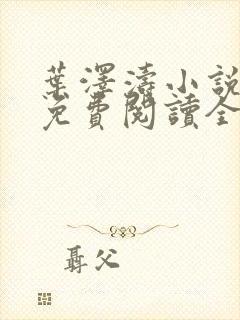 葉澤濤小說
免費閱讀全
聶父